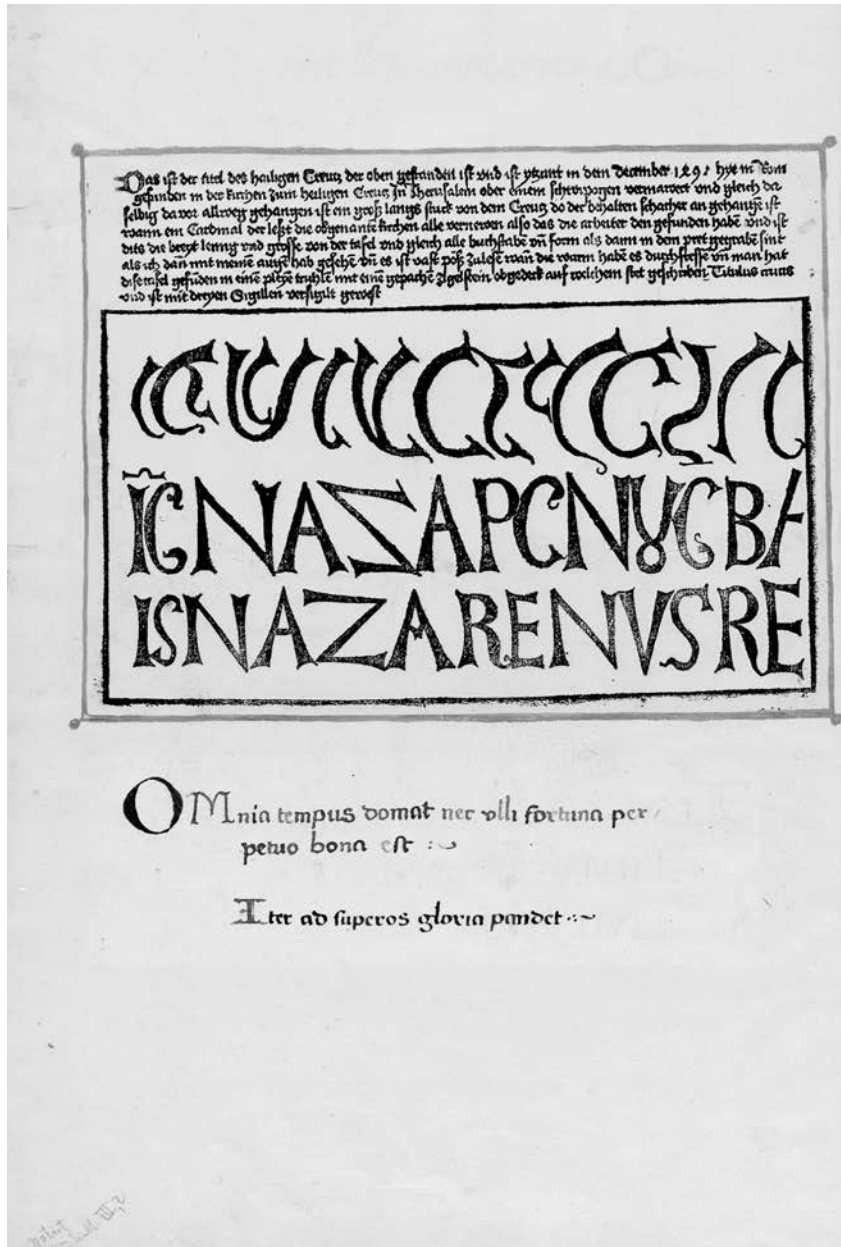 Das ist der titel des heiligen Creutz der oben gestanden ist vnd ist ytzunt in dem december 1491 hye in Rom
gefunden in der kirchen zum heiligen Creutz zu Jherusalem ober einem schwipogen vermawert vnd gleich der
selbig da vor allweg gehangen ist ein groß langs stuck von dem Creutz do der behalten schacher an gehangẽ ist
wann ein Cardinal der leßt die obgenante kirchen alle vernewen also das die arbeiter den gefunden habẽ vnd ist
ditz die breyt lenng vnd grosse von der tafel vnd gleich alle buchstabẽ vñ form als dann in dem pret gegrabẽ sint
als ich dañ mit meinẽ augẽ hab gesehẽ vñ es ist vast pöß zulesẽ wañ die wurm habẽ es durchfressẽ vñ man hat
dise tafel gefũdẽ in einẽ truhlẽ mit einẽ gepachẽ zigelstein obgedeckt auf welchem stet geschribẽ Titulus crucis
vnd ist mit dreyen Sigillen versigilt gewest
I̅CNAZAPCNȢCBA
ISNAZARENVSRE
OMnia tempus domat nec vlli fortuna per
petuo bona est
Iter ad superos gloria pandet